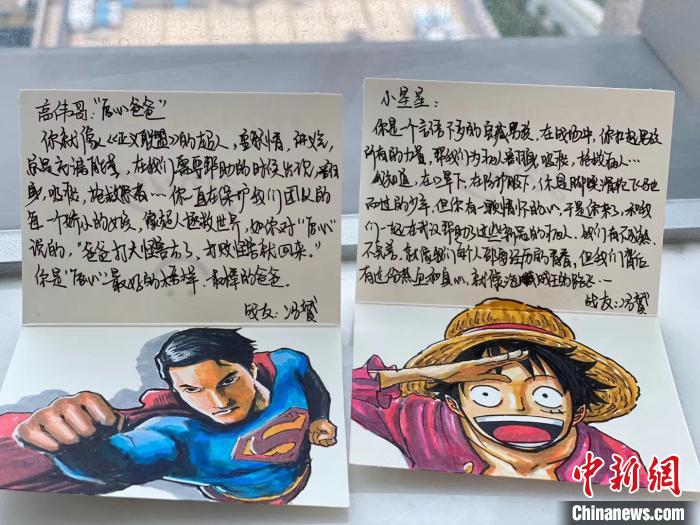 高伟哥：“唇心爸爸”
你就像《正义联盟》的超人，重感情，讲义气，
总是充满能量，在我们需要帮助的时候出现，
身，吸痰，抢救患者…你一直在保护我们团队的
每一个娇小的女孩，像超人拯救世界，如你对“唇心”
说的，“爸爸打大怪兽去了，打败怪兽就回来。”
你是“唇心”最好的榜样，最棒的爸爸。
战友：冯贺
小星星：
你是一个言语不多的宝藏男孩，在战场中，你和超男孩
所有的力量，帮我们为病人翻身，吸痰，抢救病人…
我知道，在口罩下，在防护服下，你是脚踏滑板飞
而过的少年，但你有一颗有情怀的心，于是你来了，和我
们一起在武汉帮助了这些那品的病人，她们有不
不完美，就像我们每个人都要经历的青春，但我们背后
有这份热血和真心，就像海贼王的路飞…
战友：冯贺
中新网
Chinanews.com